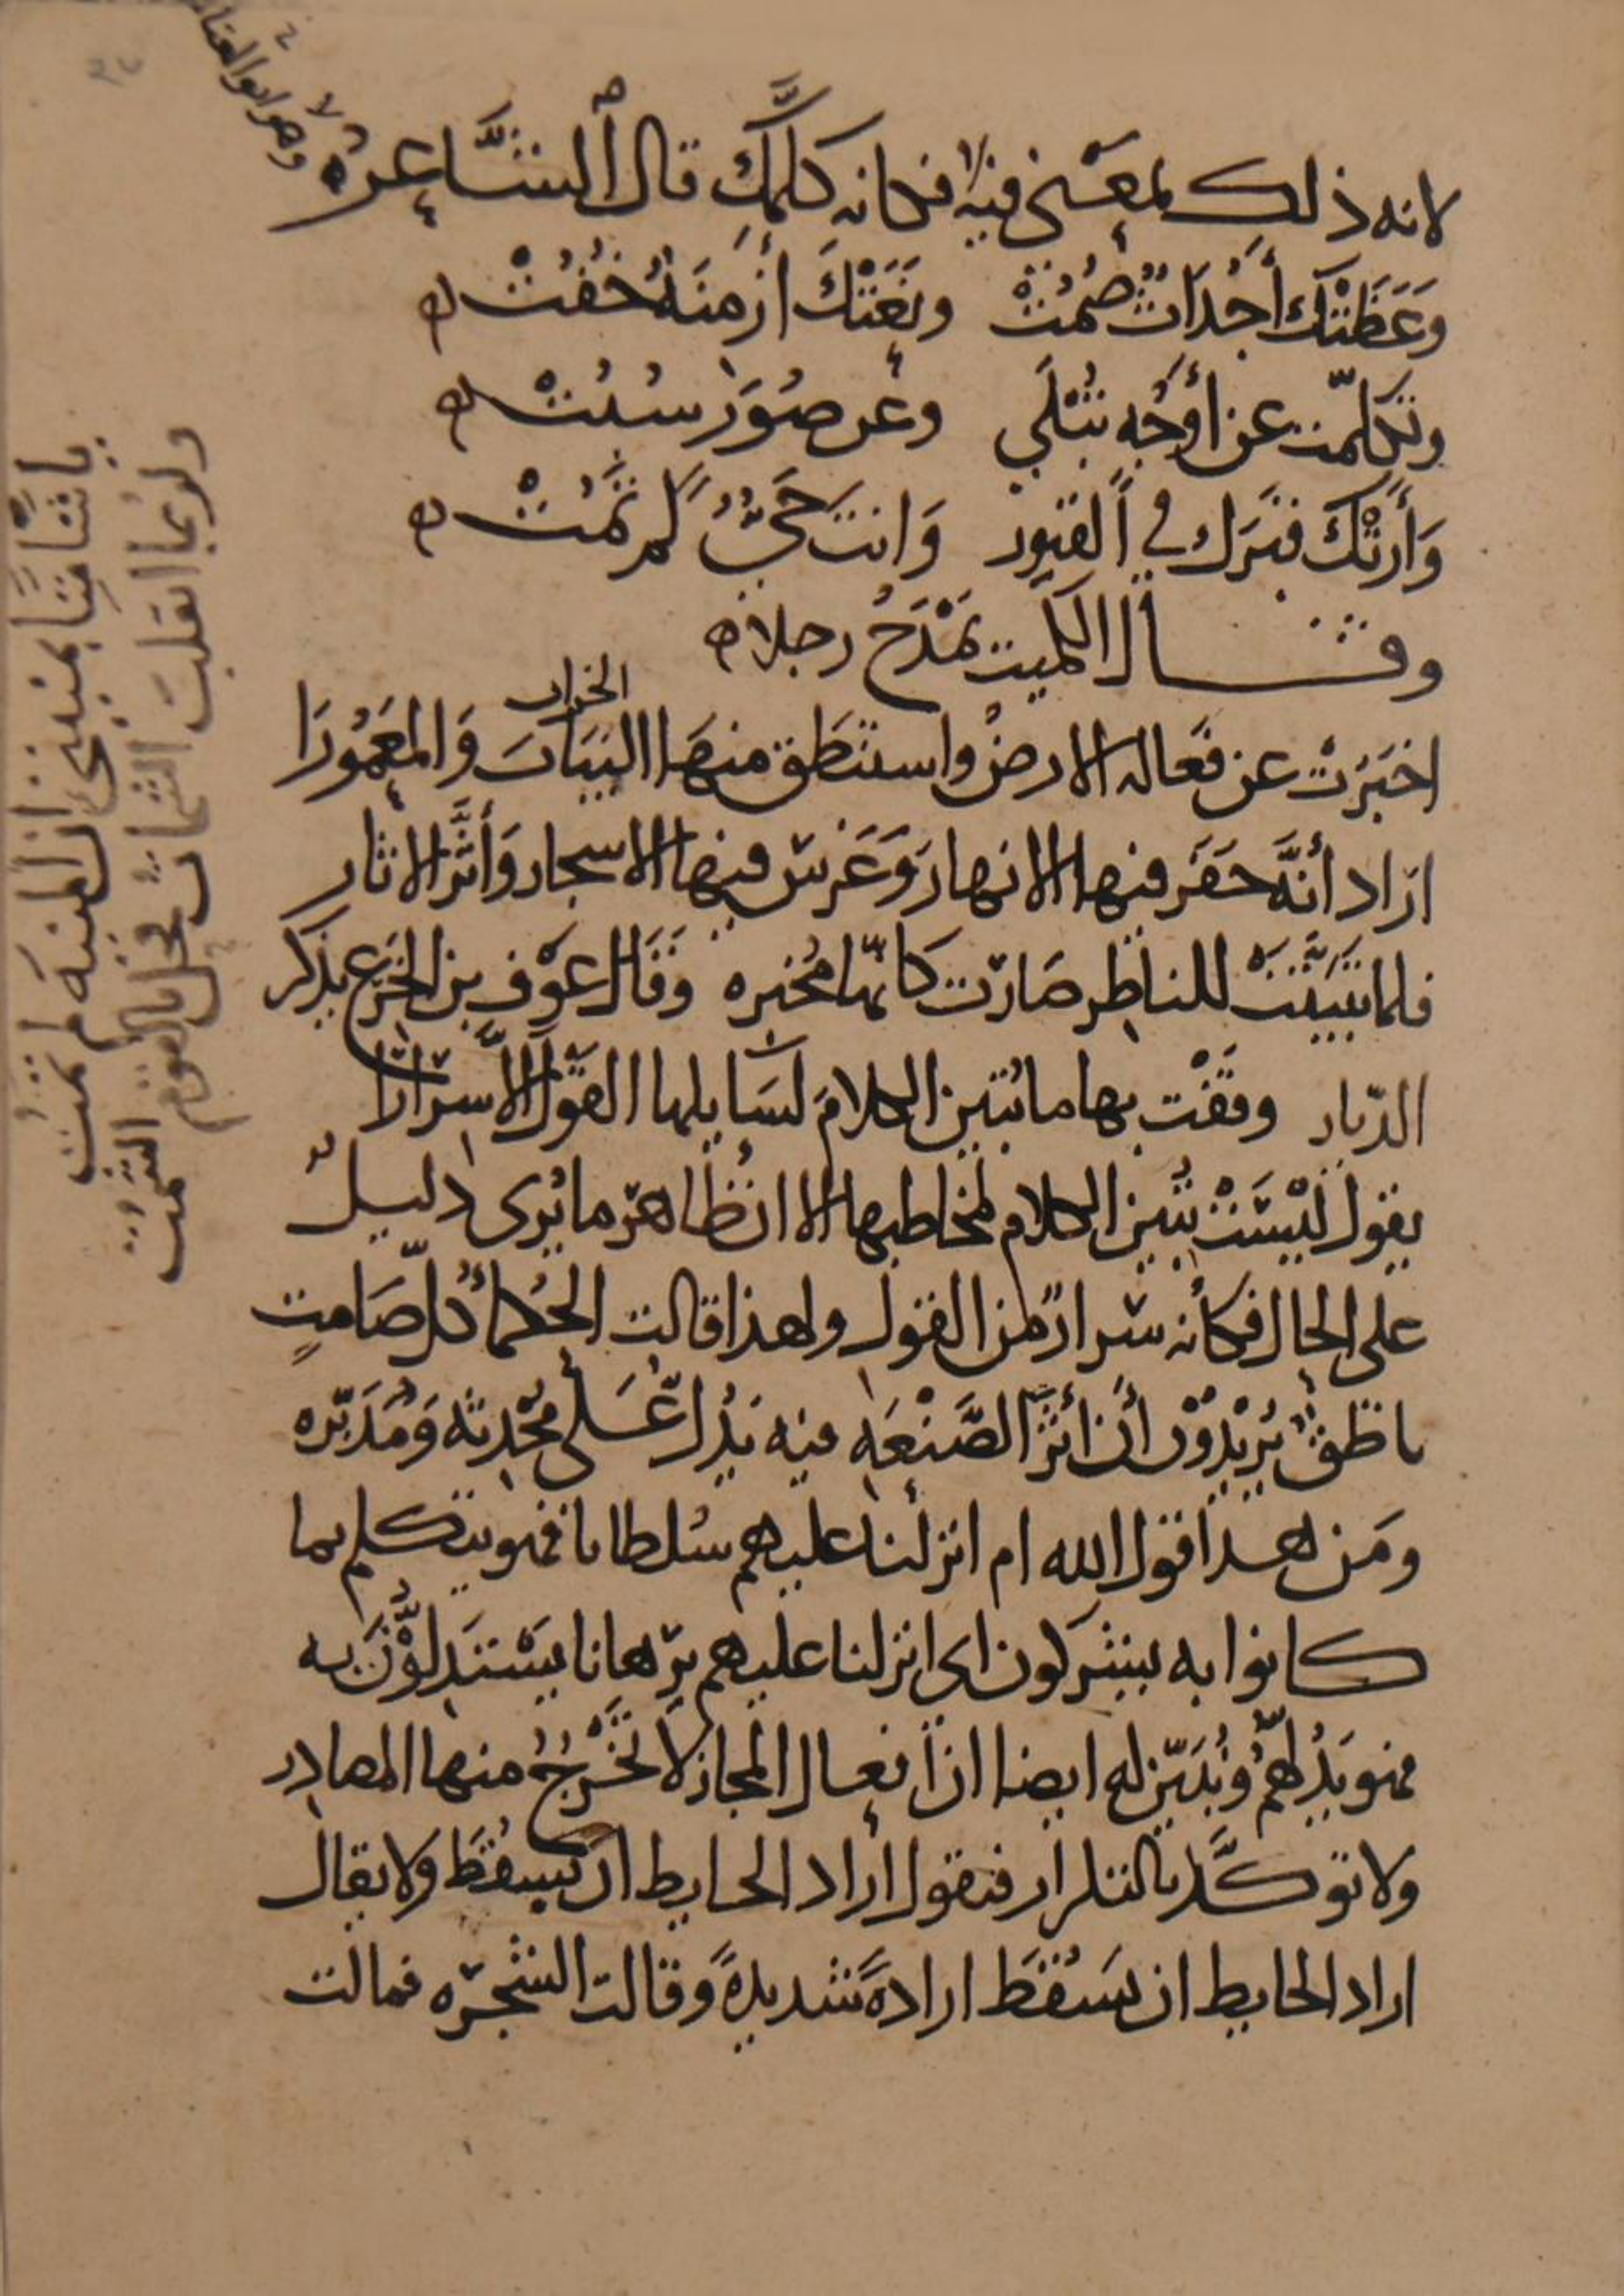 لانه ذلك لمعنى فيه فكانه كلمك قال الشاعر
وهو ابو العتا
وَعَظَتْكَ أَجْدَاثٌ صُمُتْ ونَعَتْكَ أَزْمِنَةٌ خُفُتْ
وتكلّمت عن أَوْجُهٍ تَبْلَى وعن صُوَرٍ سُبُتْ
وَأَرَتْكَ قبرَك في القبور وَانت حَيٌّ لم تَمُتْ
وقال الكميت يَمْدَحُ رجلا
الخراب
اخبَرَتْ عن فَعَاله الارضُ واستنطَقَ منهَا اليَبَابَ وَالمعَمُورَا
اراد أنَّه حَفَر فيها الانهار وَغَرَس فيها الاشجار وَأَثَّر الاثار
فلما تَبَيَّنَتْ للناظِر صَارَت كَانّها مُخبره وقَال عَوْف بن الخَرِع يذكر
الدّيار وقَفْت بها ما تُبَين الكلامَ لسَايلها القَوْل الاّ سِرَارَا
يقول لَيْسَتْ تُبَين الكلام لمخاطبها الا ان ظاهر ما يُرى دليلٌ
على الحال فكأنه سرار من القول ولهذا قالت الحُكمآ كُلّ صَامتٍ
ناطِقٌ يُرِيْدُوْن أن أَثَرَ الصَّنْعَهِ فيه يَدُلّ عَلى مُحْدِثه وَمُدَبّره
ومَن هذا قول الله ام انزلنا عليهم سُلطانا فهو يتكلم بما
كانوا به يشركون اى انزلنا عليهم برهانا يَسْتَدِلُّوْنَ به
فهو يَدُلهُّم ونُبَيّن له ايضا ان افعال المجاز لا تَخْرُجُ منها المصادر
ولا تؤكَّد بالتكرار فتقول أراد الحايط ان يَسقُطَ ولا يقال
اراد الحايط ان يَسْقُطَ ارادةً شديدةً وقالت الشجره فمالت
ولربما انقلبَ الشمات فحل بالقوم الشُّمُت
يا شامتًا بمنيتى ان المنيه لم تَمُت